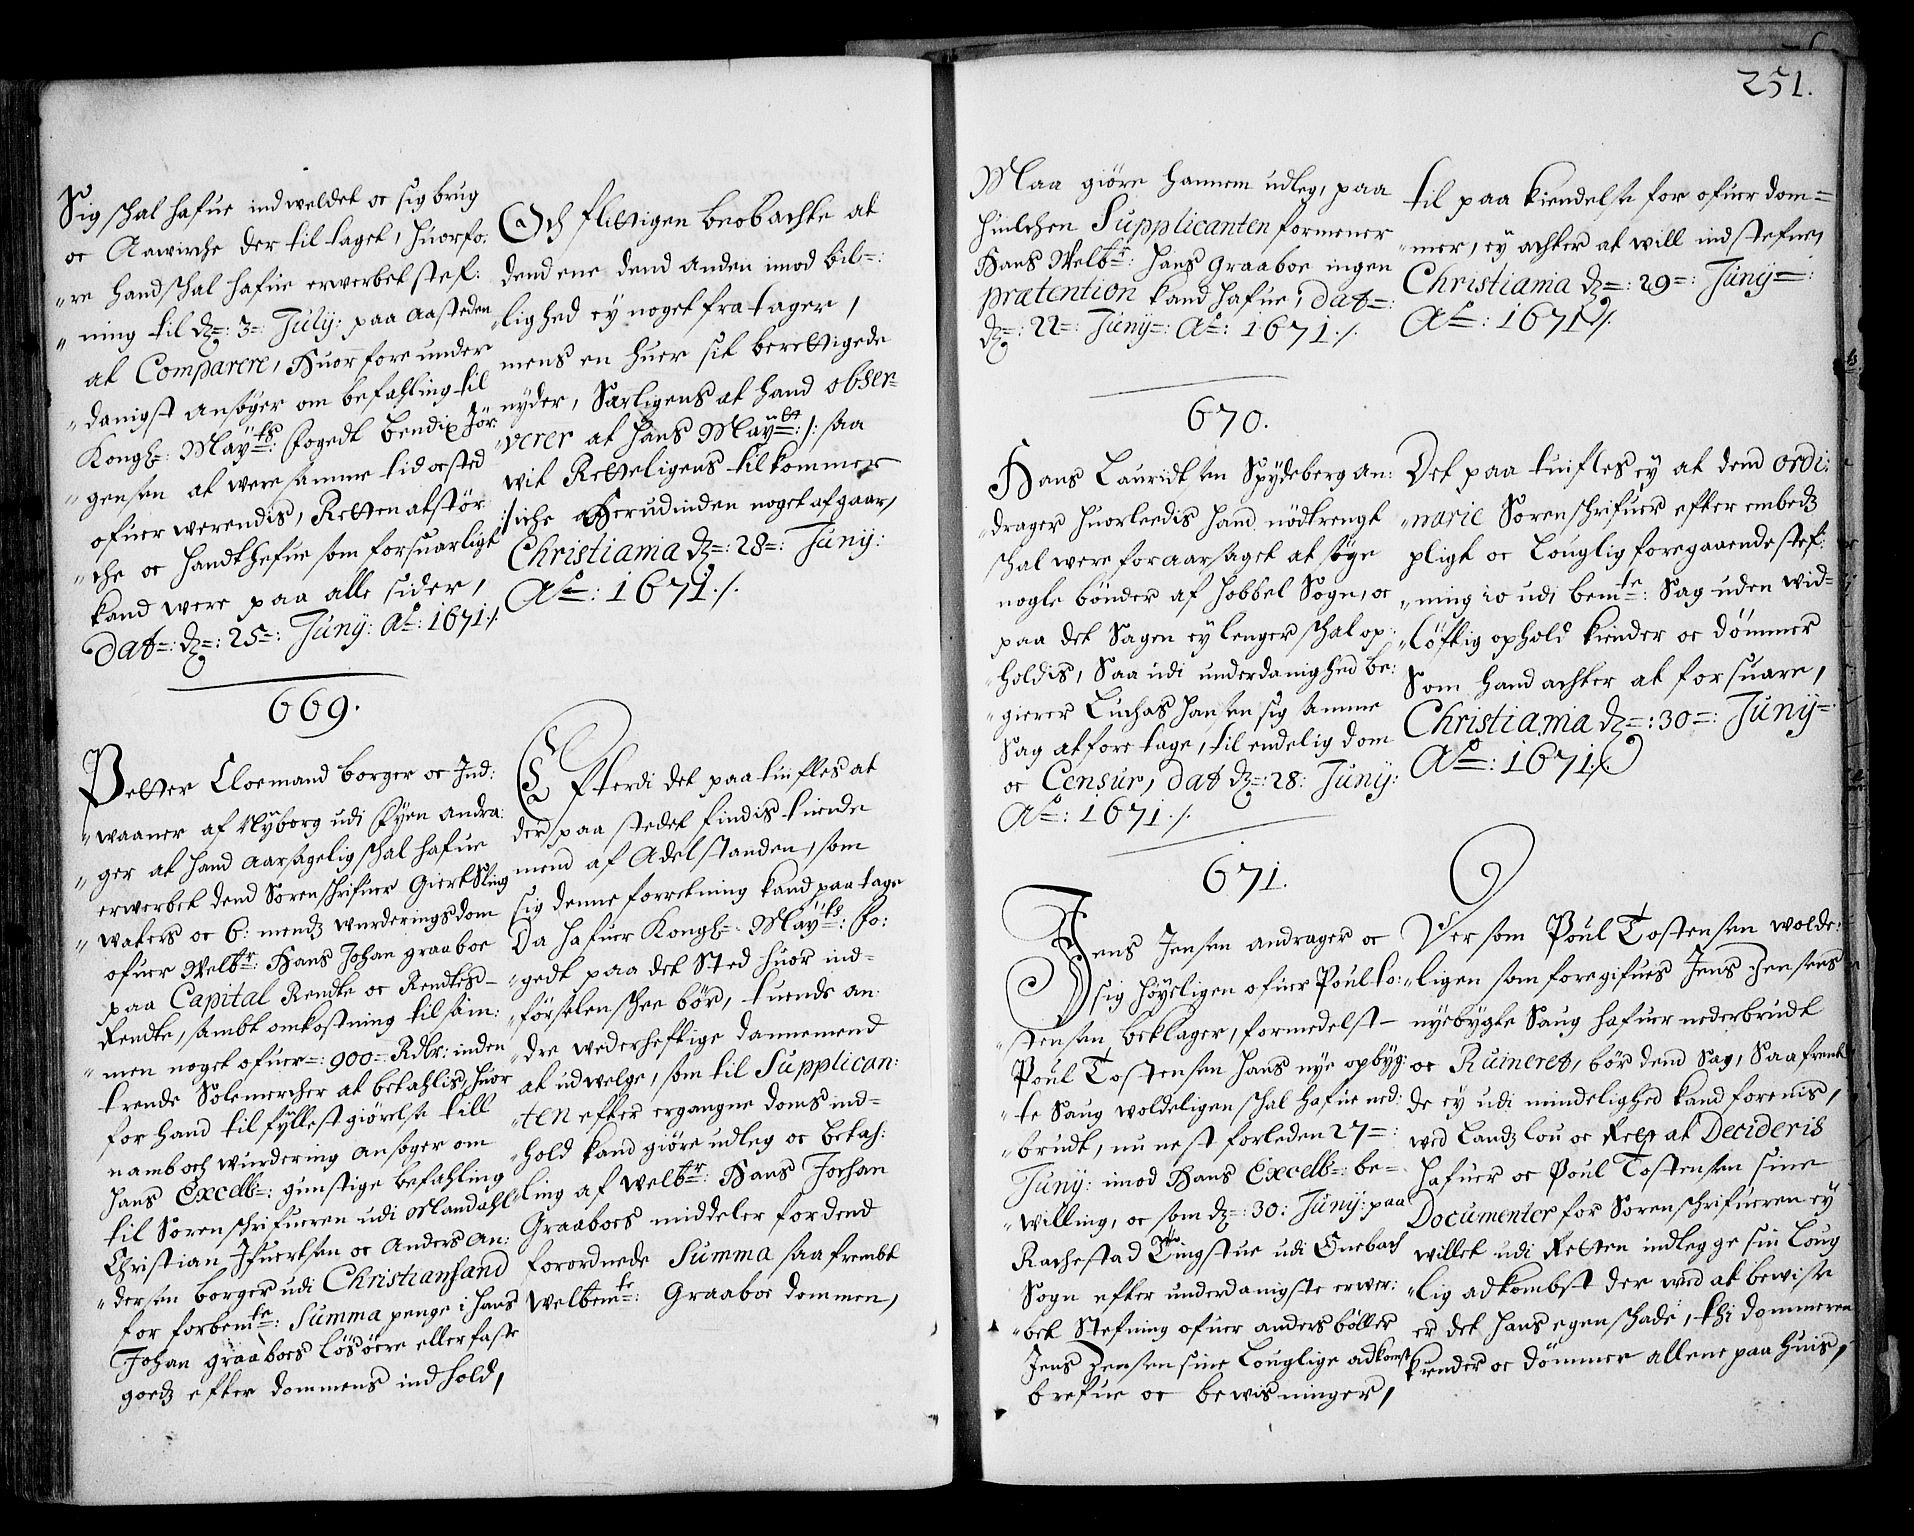 Sig schal hafue indweldet oc sig brug
oc Aawirche der til taget, huorfo:
"re hand schal hafue erwerbet stef:
"ning til dz=: 3=: July: paa aasteden
at Comparere, Huorfore under
"danigst ansøger om befahling til
Kongl=: Mayts: fogedt Bendix Jør
"gensen at were samme tid oc sted
ofuerwerendis, Retten at stør
"che oc handthefue som forsuarligt
kand were paa alle sider,
Dat=: dz=: 25=: Juny: Ao=: 1671 ./.
Och flittigen beobachte at
dend ene dend anden imod bil=:
"lighed ey noget fratager,
mens en huer sit berettigede
nyder, Særligens at hand obser=
"verer at hans Mayt: /: saa
wit Retteligens tilkommer
:/ iche herudinden noget afgaar,
Christiania dz=: 28=: Juny:
Ao=: 1671 ./.
669.
Petter Cloemand borger oc Ind:
"waaner af Nyborg udi Fyen andra:
"ger at hand aarsagelig schal hafue
erwerbet dend Sorenschrifuer Giert Sling
"waters oc 6: mendz wurderings dom
ofuer Welbr: Hans Johan Graaboe
paa Capital Rendte oc Rendtes-
Rendte, sambt omkostning tilsam:
"men noget ofuer=: 900=: Rdlr: inden
trende Solemercher at betahlis, huor
for hand til fyllestgiørelse till
namb och wurdering ansøger om
hans Excelb=: gunstige befahling
til Sorenschrifueren udi Oslandahl
Christian Jfuertsen oc Anders An:
"dersen borger udi Christiansand
for forbemte=: Summa penge i Hans
Johan Graaboes løsøere eller faste
goedz efter dommens indhold,
Efterdi det paatuifles at
der paa stedet findis tuende
mend af Adelstanden, som
sig denne forretning kand paatage
Da hafuer Kongl=: Mayts: fo:
"gedt paa det Sted huor ind=
"førselen schee bør, tuende an
"dre wederheftige dannemend
at udwelge, som til Supplican:
"ten efter ergangne doms ind=
"hold kand giøre udleg oc betah:
"ling af welbr: Hans Johan
Graaboes middeler for dend
forordnede Summa saa frembt
Welbemte=: Graaboe dommen,
251.
Maa giøre hannem udleg, paa
huilchen Supplicanten formener
Hans Welbr: Hans Graaboe ingen
prætention kand hafue, dat=:
dz=: 22=: Juny=: Ao=: 1671 ./.
til paa kiendelse for ofuerdom=
"mer, ey achter at will indstefne,
Christiania dz=: 29=: Juny=:
Ao=: 1671 ./.
670.
Hans Lauridtsen Spydeberg an:
"drager huorleedis hand nødtrengt
schal were foraarsaget at søge
nogle bønder af Hobbel Sogn, oc
paa det Sagen ey lenger schal op:
"holdis, Saa udi underdanighed be:
"gierer Luchas Hansen sig samme
Sag at foretage, til endelig dom
oc Censur, Dat dz=: 28: Juny:
Ao=: 1671 ./.
Det paatuifles ey at dend ordi:
"narie Sorenschrifuer efter embedz
pligt oc Louglig foregaaende stef:
"ning io udi bemte=: Sag uden wid=
"løftig ophold kiender oc dømmer
Som hand achter at forsuare,
Christiania dz=: 30=: Juny=
Ao=: 1671 ./.
671.
Jens Jensen andrager oc
sig høyeligen ofuer Poul To:
"stensen beklager, formedelst-
Poul Tostensen hans nye opbyg:
"te Saug woldeligen schal hafue ned:
"brudt, nu nest forleden 27=:
Juny: imod Hans Excelb=: be=
"willing, oc som dz=: 30: Juny: paa
Rachestad Tingstue udi Enebach
Sogn efter underdanigste erwer:
"bet Stefning ofuer Anders Bøller
Jens Jensen sine Louglige adkomst
brefue oc bewisninger,
Der som Poul Tostensen wolde:
"ligen som foregifues Jens Jensens
nyebygte Saug hafuer nederbrudt
oc Ruineret, bør dend Sag, Saafremt
de ey udi mindelighed kand forenis,
wed Landz Lou oc Ret at Decideris
hafuer oc Poul Tostensen sine
Documenter for Sorenschrifueren ey
willet udi Retten indlegge sin Loug
"lig adkombst der med at bewise
er det hans egen schade, thi dommeren
kiender oc dømmer allene paa huis,